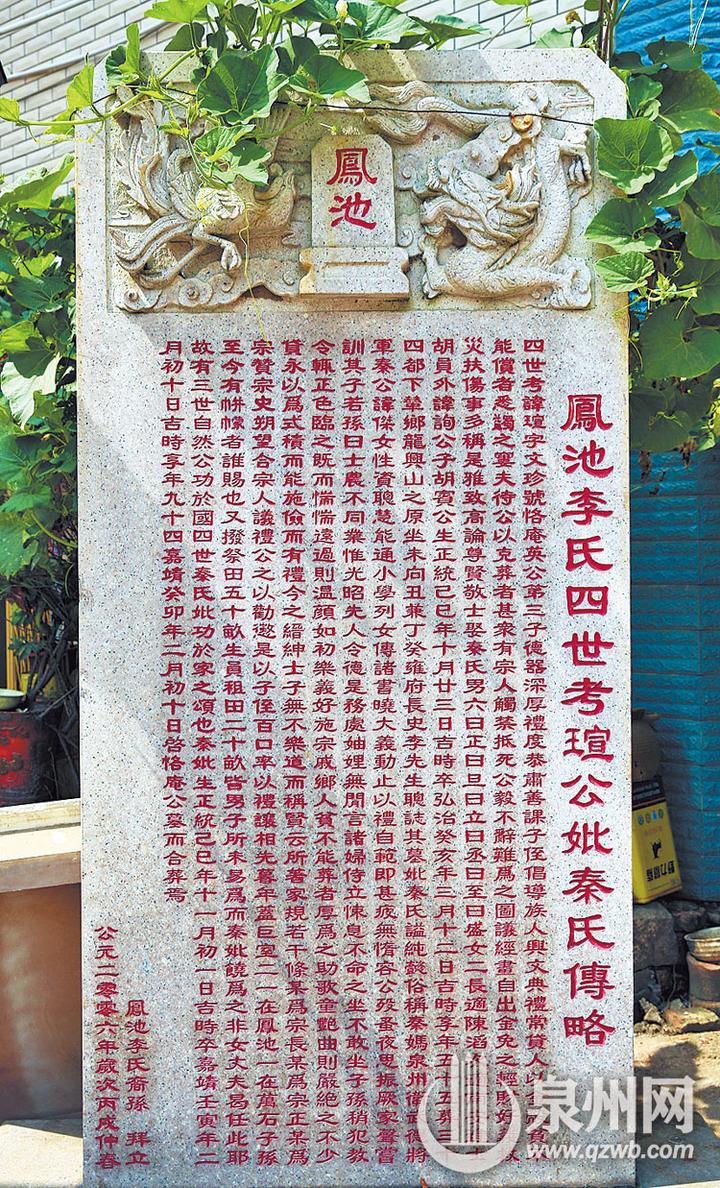 鳳池
鳳池李氏四世考瑄公妣秦氏傳略
四世考諱瑄字文珍號恪庵英公第三子德器深厚禮度恭肅善課子侄倡導族人興文典禮常貸人以
能償者悉蠲之窶夫待公以克葬者甚衆有宗人觸禁抵死公毅不辭難爲之圖議經畫自出金免之輕財好
災扶傷事多稱是雅致高論尊賢敬士娶秦氏男六曰正曰旦曰立曰丞曰至曰盛女二長適陳滔
胡員外諱詢公子胡賓公生正統己巳年十月廿三日吉時卒弘治癸亥年三月十二日吉時享年五十五葬三十
四都下輦鄉龍興山之原坐未向丑兼丁癸雍府長史李先生聰誌其墓妣秦氏謚純懿俗稱秦媽泉州衛武德將
軍秦公諱傑女性資聰慧能通小學列女傳諸書曉大義動止以禮自範即甚疲無惰容公殁蚤夜思振厥家聲嘗
訓其子若孫曰士農不同業惟光昭先人令德是務處妯娌無閒言諸婦侍立悚息不命之坐不敢坐子孫稍犯教
令輒正色臨之既而惴惴遠過則温顏如初樂義好施宗戚鄉人貧不能葬者厚爲之助歌童艷曲則嚴絶之不少
貸永以爲式積而能施儉而有禮今之縉紳士子無不樂道而稱賢云所著家規若干條某爲宗長某爲宗正某爲
宗贊宗史朔望合宗人議禮公之以勸懲是以子侄百口率以禮讓相先暮年蓋巨室二一在鳳池一在萬石子孫
至今有帡幪者誰賜也又撥祭田五十畝生員租田二十畝皆男子所未易爲而秦妣饒爲之非女丈夫曷任此耶
故有三世自然公功於國四世秦氏妣功於家之頌也秦妣生正統己巳年十一月初一日吉時卒嘉靖壬寅年二
月初十日吉時享年九十四嘉靖癸卯年二月初十日啓恪庵公墓而合葬焉
鳳池李氏裔孫 拜立
公元二零零六年歲次丙戌仲春
泉州网
www.qzwb.com